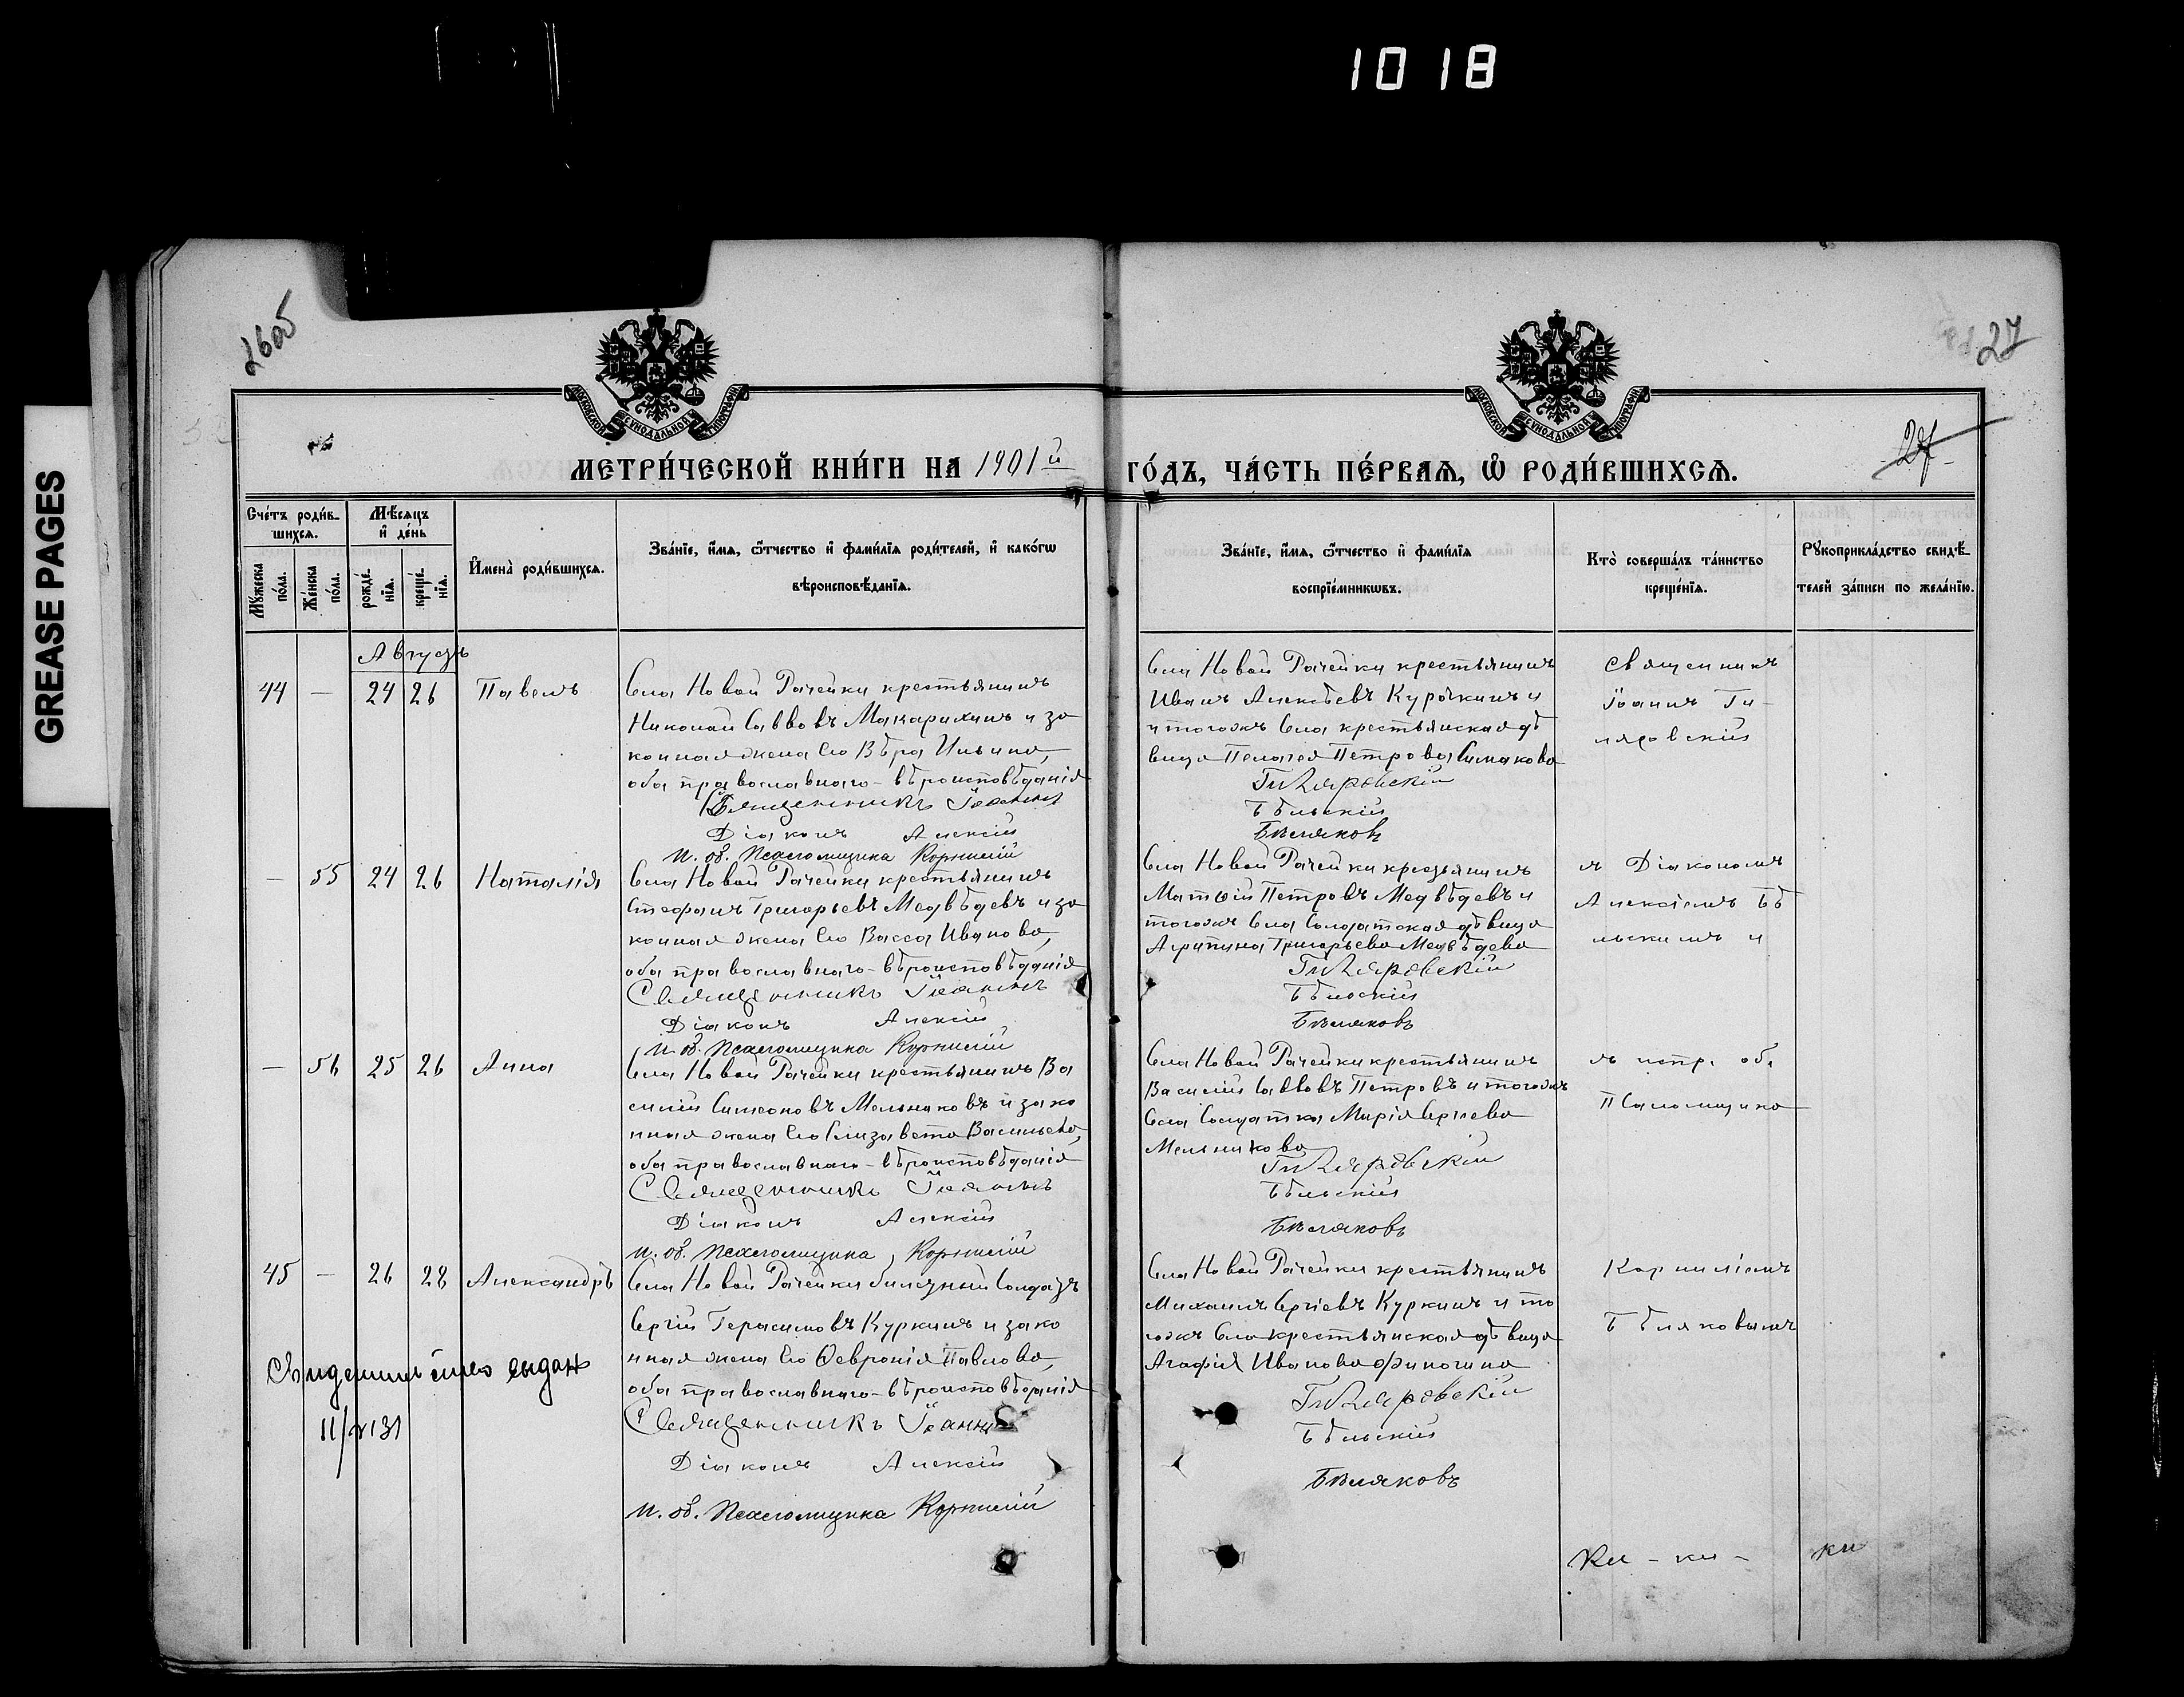 1018
GREASE PAGES
26об
27
27
МОСКОВСКОЙ СѴНОДАЛЬНОЙ ТИПОГРАФІИ
МОСКОВСКОЙ СѴНОДАЛЬНОЙ ТИПОГРАФІИ
МЕТРИ́ЧЕСКОЙ КНИ́ГИ НА 1901й ГО́ДЪ, ЧА́СТЬ ПЕ́РВАѦ, Ѡ҆ РОДИ́ВШИХСѦ.
Сче́тъ роди́вшихсѧ.
Мꙋ́жеска по́ла.
Же́нска по́ла.
Мѣ́сѧцъ и҆ де́нь
рожде́нїѧ.
креще́нїѧ.
И҆мена̀ роди́вшихсѧ.
Зва́нїе, и҆́мѧ, ѻ҆́тчество и҆ фами́лїѧ роди́телей, и҆ како́гѡ
вѣроисповѣ́данїѧ.
Зва́нїе, и҆́мѧ, ѻ҆́тчество и҆ фами́лїѧ
воспрїе́мникѡвъ.
Кто̀ соверша́лъ та́инство
креще́нїѧ.
Рꙋкоприкла́дство свидѣ́-
телей за́писи по жела́нїю.
Августъ
44 — 24 26 Павелъ
Села Новой Рачейки крестьянинъ
Николай Саввовъ Макарихинъ и за
конная жена его Вѣра Ильина,
оба православнаго-вѣроисповѣданія
Священникъ Іоаннъ
Діаконъ Алексій
И. об. Псаломщика Корнилій
Села Новой Рачейки крестьянинъ
Иванъ Алексѣевъ Курочкинъ и
и тогожъ села крестьянская дѣ
вица Пелагея Петрова Симакова
Гиляровскій
Бѣльскій
Бѣляковъ
Священникъ
Іоаннъ Ги-
ляровскій
— 55 24 26 Наталія
Села Новой Рачейки крестьянинъ
Стефанъ Григорьевъ Медвѣдевъ и за
конная жена его Васса Иванова,
оба православнаго-вѣроисповѣданія
Священникъ Іоаннъ
Діаконъ Алексій
И. об. Псаломщика Корнилій
Села Новой Рачейки крестьянинъ
Матѳій Петровъ Медвѣдевъ и
тогожъ села солдатская дѣвица
Агрипина Григорьева Медвѣдева
Гиляровскій
Бѣльскій
Бѣляковъ
съ Діакономъ
Алексіемъ Бѣ
льскимъ и
— 56 25 26 Анна
Села Новой Рачейки крестьянинъ Ва
силій Симеоновъ Мельниковъ и зако
нная жена его Елизавета Васильева,
оба православнаго-вѣроисповѣданія
Священникъ Іоаннъ
Діаконъ Алексій
И. об. Псаломщика Корнилій
Села Новой Рачейки крестьянинъ
Василій Саввовъ Петровъ и тогожъ
села солдатка Марія Сергіева
Мельникова
Гиляровскій
Бѣльскій
Бѣляковъ
съ испр. об.
Псаломщика
45 — 26 28 Александръ
Села Новой Рачейки билетный солдатъ
Сергій Герасимовъ Куркинъ и зако
нная жена его Ѳевронія Павлова,
оба православнаго-вѣроисповѣданія
Священникъ Іоаннъ
Діаконъ Алексій
И. об. Псаломщика Корнилій
Свидетельство выдан
Села Новой Рачейки крестьянинъ
Михаилъ Сергіевъ Куркинъ и то
гожъ села крестьянская дѣвица
Агафія Иванова Финогина
Гиляровскій
Бѣльскій
Бѣляковъ
Корниліемъ
Бѣляковымъ